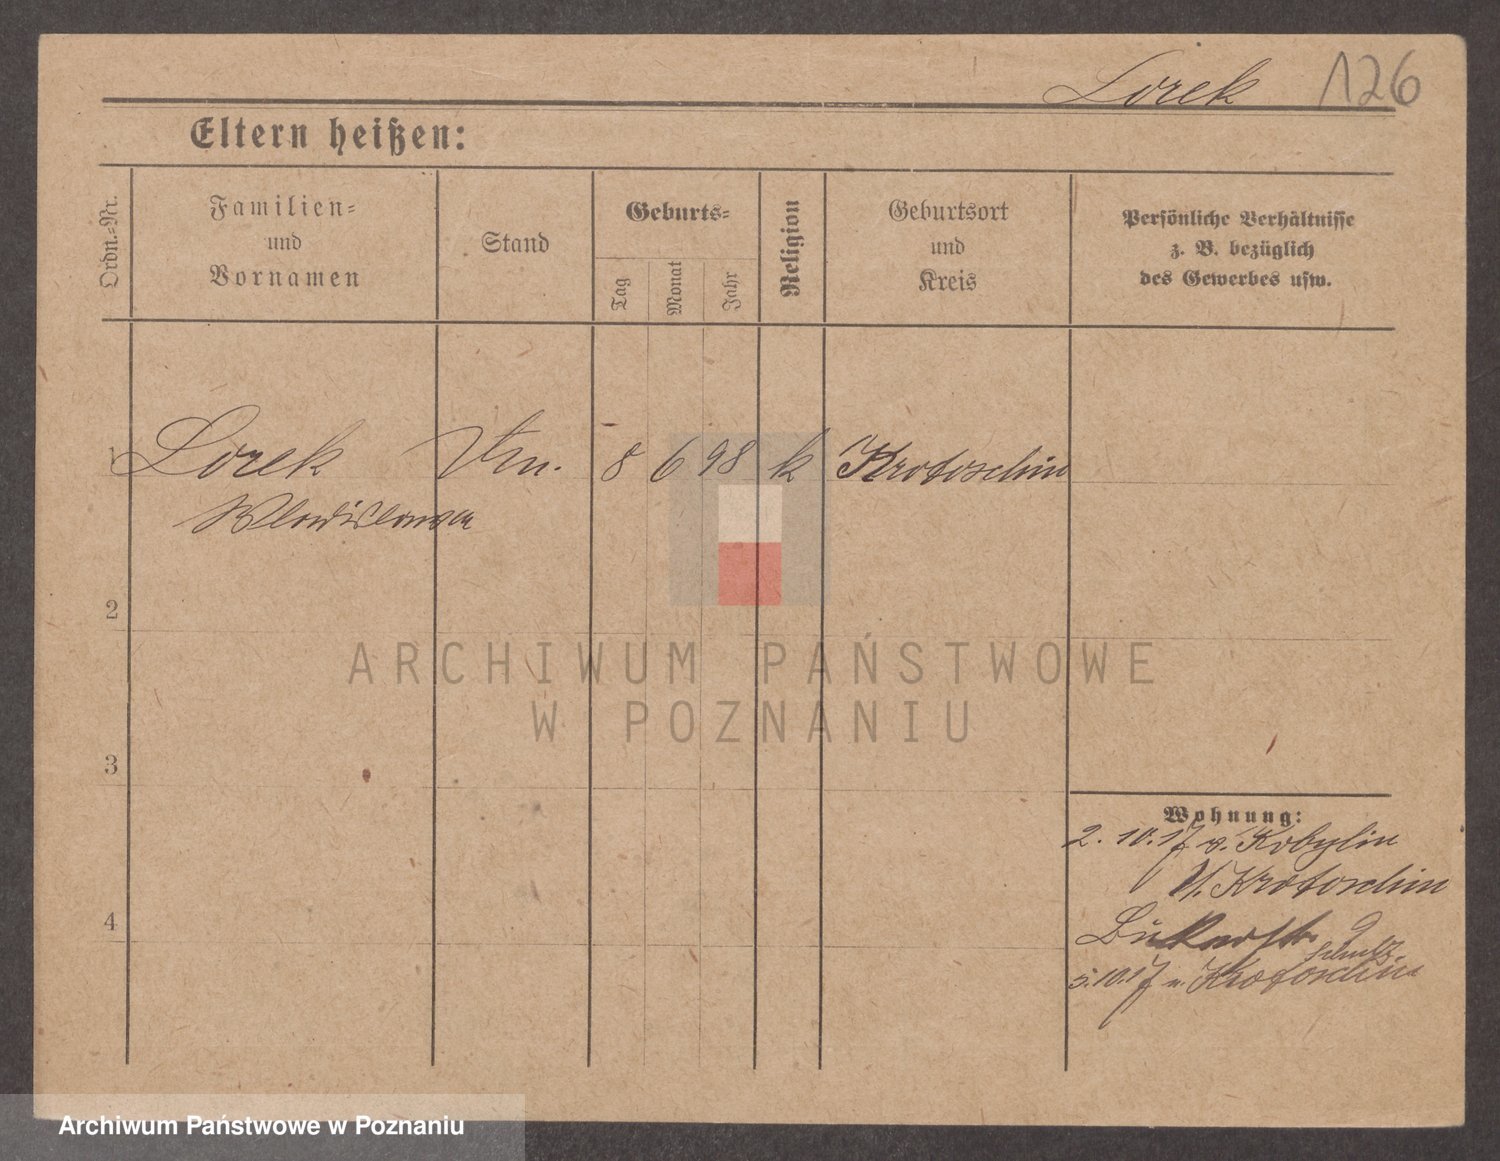 Lorek 126
Eltern heißen:
Ordn.-Nr.
Familien-
und
Vornamen
Stand
Geburts-
Tag
Monat
Jahr
Religion
Geburtsort
und
Kreis
Persönliche Verhältnisse
z. B. bezüglich
des Gewerbes usw.
1 Lorek 8 6 98 k Krotoschin
Wladislawa
2
3
4
Wohnung:
2.10.17 v. Kobylin
n. Krotoschin
9
Schulz
5.10.17 n. Krotoschin
ARCHIWUM PAŃSTWOWE
W POZNANIU
Archiwum Państwowe w Poznaniu